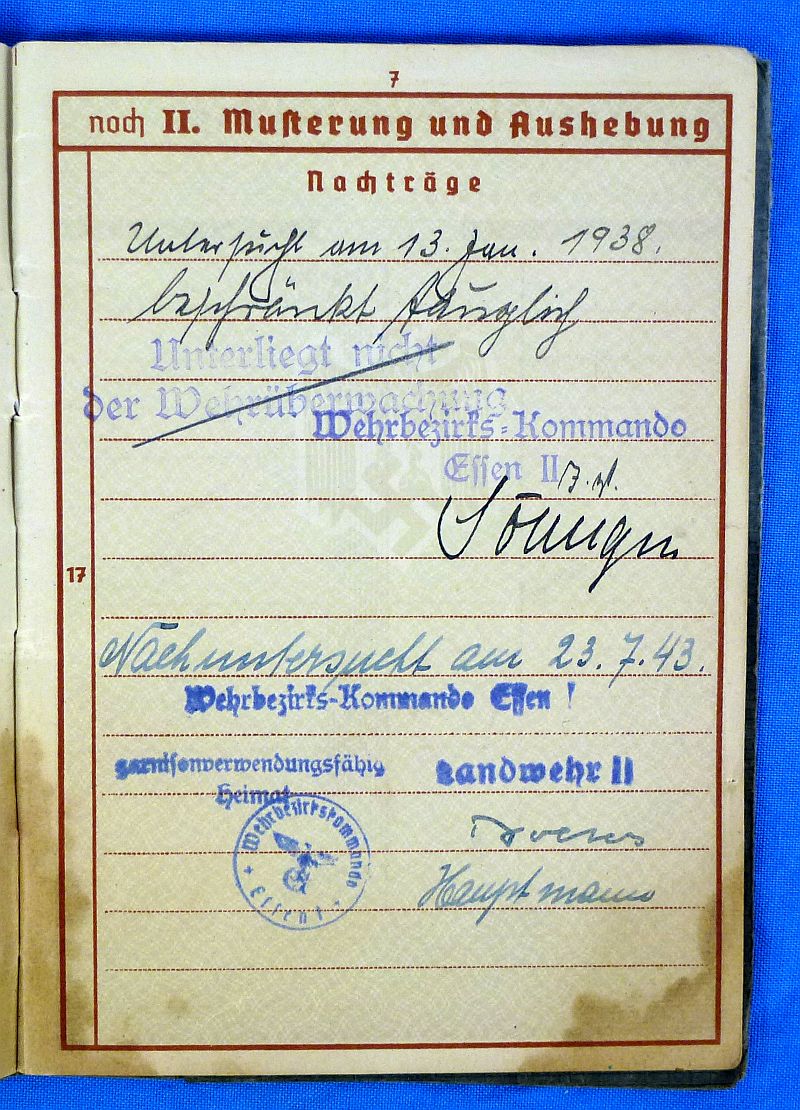 7
noch II. Musterung und Aushebung
Nachträge
Untersucht am 13. Jan. 1938.
beschränkt tauglich
Unterliegt nicht
der Wehrüberwachung
Wehrbezirks-Kommando
Essen II
17
Nachuntersucht am 23.7.43.
Wehrbezirks-Kommando Essen I
garnisonverwendungsfähig
Landwehr II
Heimat
Wehrbezirkskommando
Essen I
Hauptmann